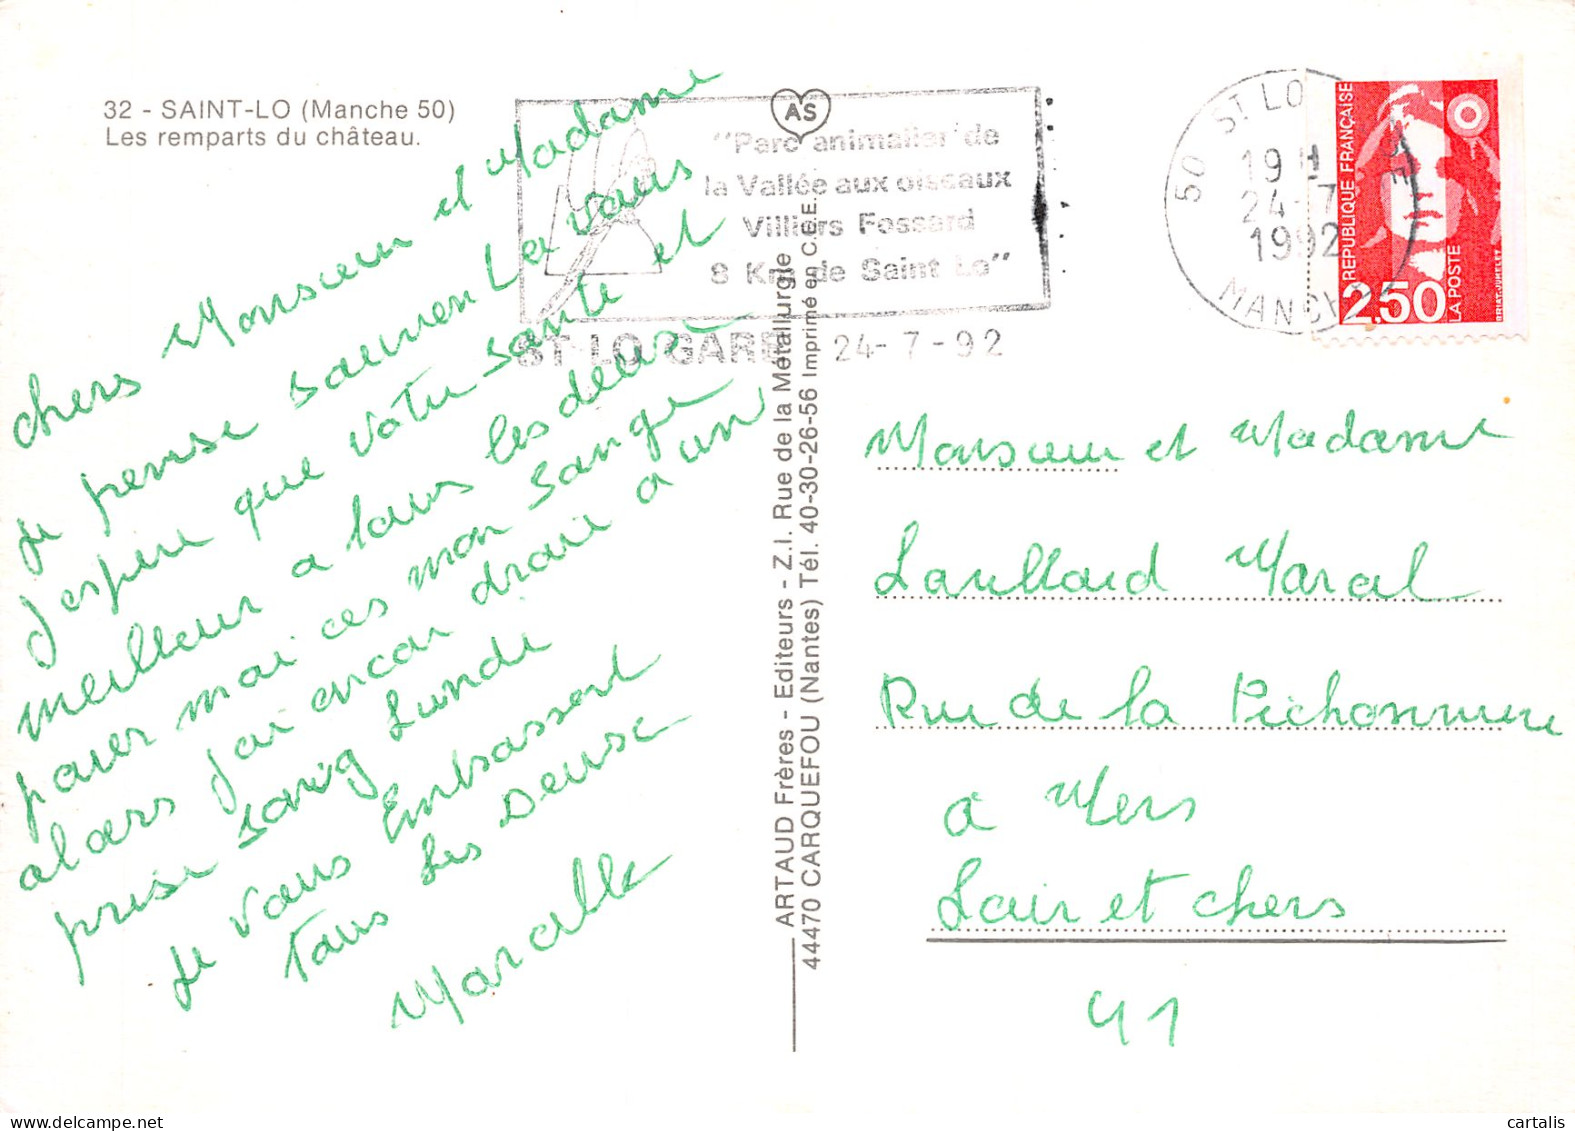 32 - SAINT-LO (Manche 50)
Les remparts du château.
AS
"Parc animalier de
la Vallée aux oiseaux
Villiers Fossard
8 Km de Saint Lo"
ST-LO GARE 24-7-92
50 ST LO
19 H
24-7
1992
MANCHE
REPUBLIQUE FRANÇAISE
2,50
LA POSTE
BRIAT-JUMELET
chers Monsieur et Madame
je pense sauven La vous
j'espère que votre sante et
meilleur a tous les deux
pouer moi ces mon sange
alors j'ai encor droie a un
prise sang Lundi
je vous Embrassent
tous Les Deuse
Marcelle
ARTAUD Frères - Editeurs - Z.I. Rue de la Métallurgie
44470 CARQUEFOU (Nantes) Tél. 40-30-26-56 Imprimé en C.E.E.
Monsieur et Madame
Laullard Maral
Rue de la Pichonniere
a Mers
Loir et chers
41
cartalis
www.delcampe.net